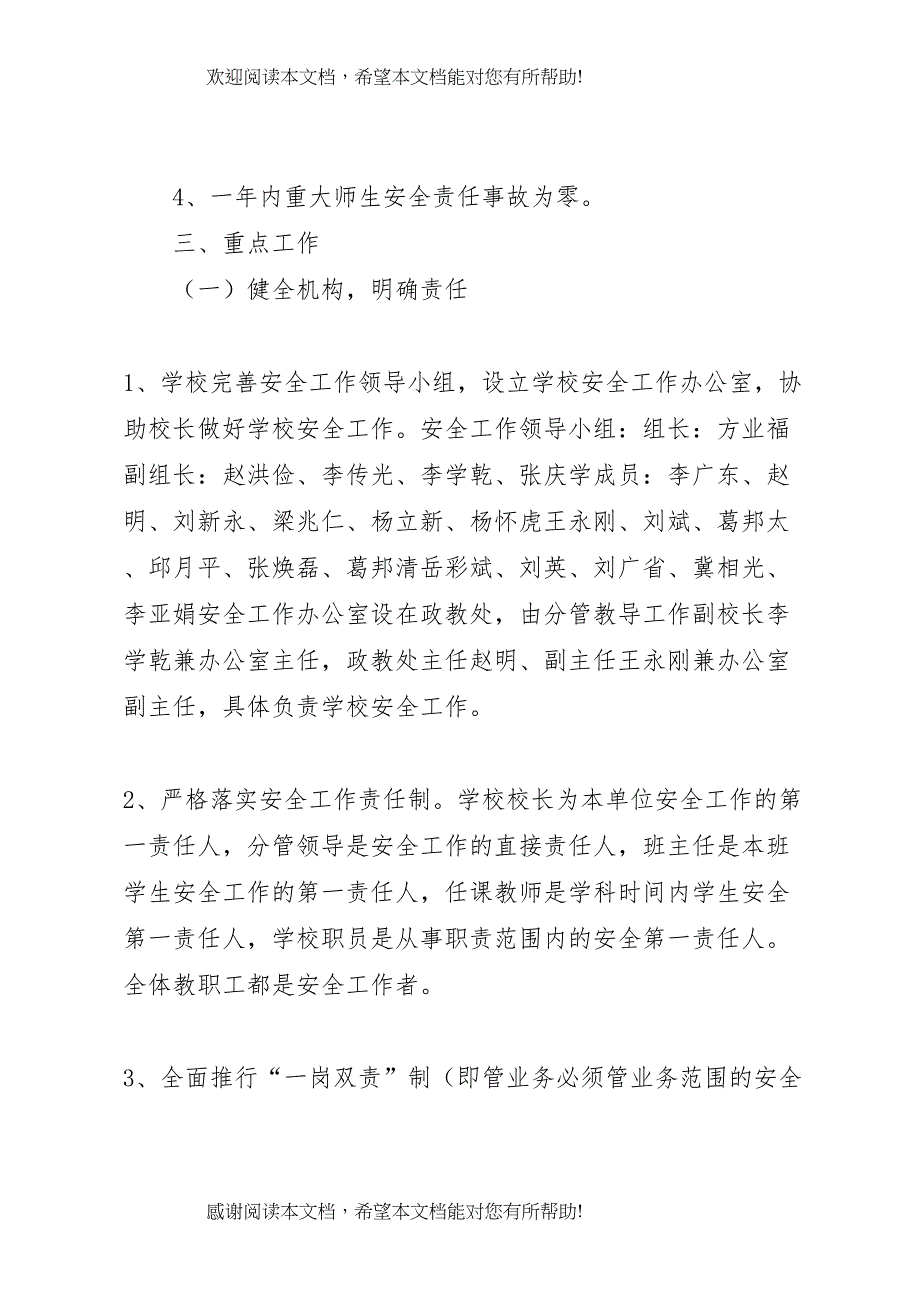 欢迎阅读本文档，希望本文档能对您有所帮助!
4、一年内重大师生安全责任事故为零。
三、重点工作
（一）健全机构，明确责任
1、学校完善安全工作领导小组，设立学校安全工作办公室，协
助校长做好学校安全工作。安全工作领导小组：组长：方业福
副组长：赵洪俭、李传光、李学乾、张庆学成员：李广东、赵
明、刘新永、梁兆仁、杨立新、杨怀虎王永刚、刘斌、葛邦太
、邱月平、张焕磊、葛邦清岳彩斌、刘英、刘广省、冀相光、
李亚娟安全工作办公室设在政教处，由分管教导工作副校长李
学乾兼办公室主任，政教处主任赵明、副主任王永刚兼办公室
副主任，具体负责学校安全工作。
2、严格落实安全工作责任制。学校校长为本单位安全工作的第
一责任人，分管领导是安全工作的直接责任人，班主任是本班
学生安全工作的第一责任人，任课教师是学科时间内学生安全
第一责任人，学校职员是从事职责范围内的安全第一责任人。
全体教职工都是安全工作者。
3、全面推行“一岗双责”制（即管业务必须管业务范围的安全
感谢阅读本文档，希望本文档能对您有所帮助!